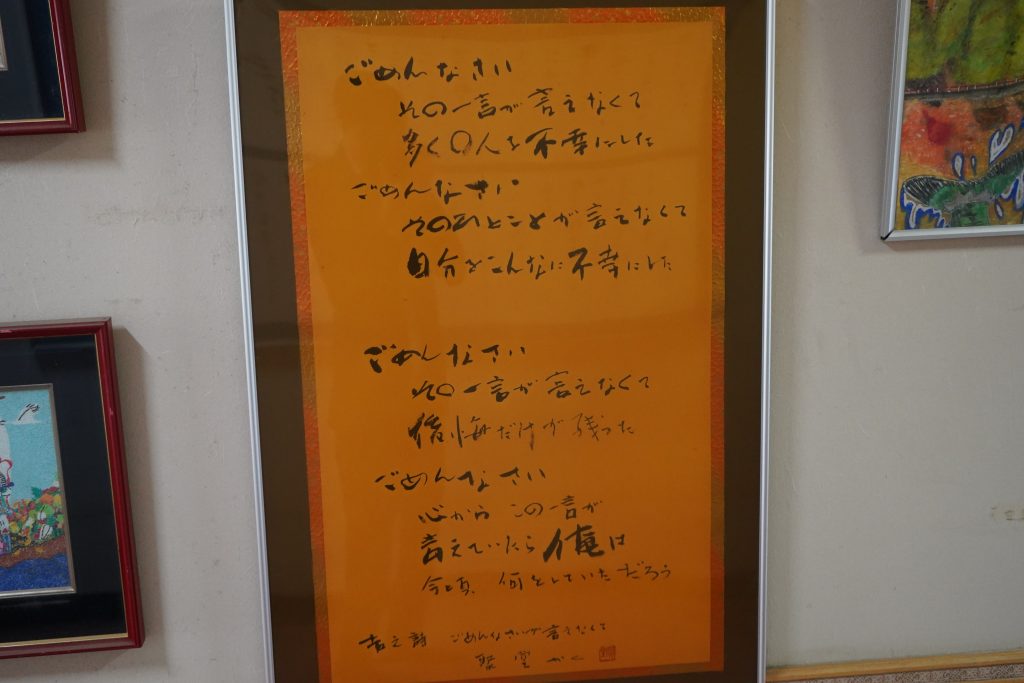 ごめんなさい
その一言が言えなくて
多くの人を不幸にした
ごめんなさい
そのひとことが言えなくて
自分をこんなに不幸にした
ごめんなさい
その一言が言えなくて
後悔だけが残った
ごめんなさい
心から この一言が
言えていたら 俺は
今頃 何をしていただろう
ごめんなさいが言えなくて